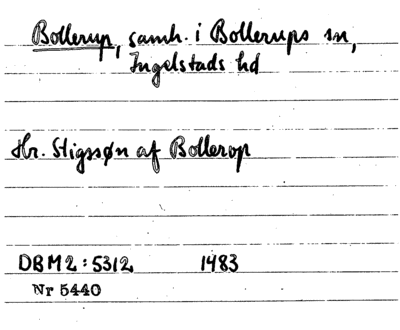 Bollerup, samh. i Bollerups sn,
Ingelstads hd
Hr. Stigssøn af Bollerop
DBM2:5312 1483
Nr 5440